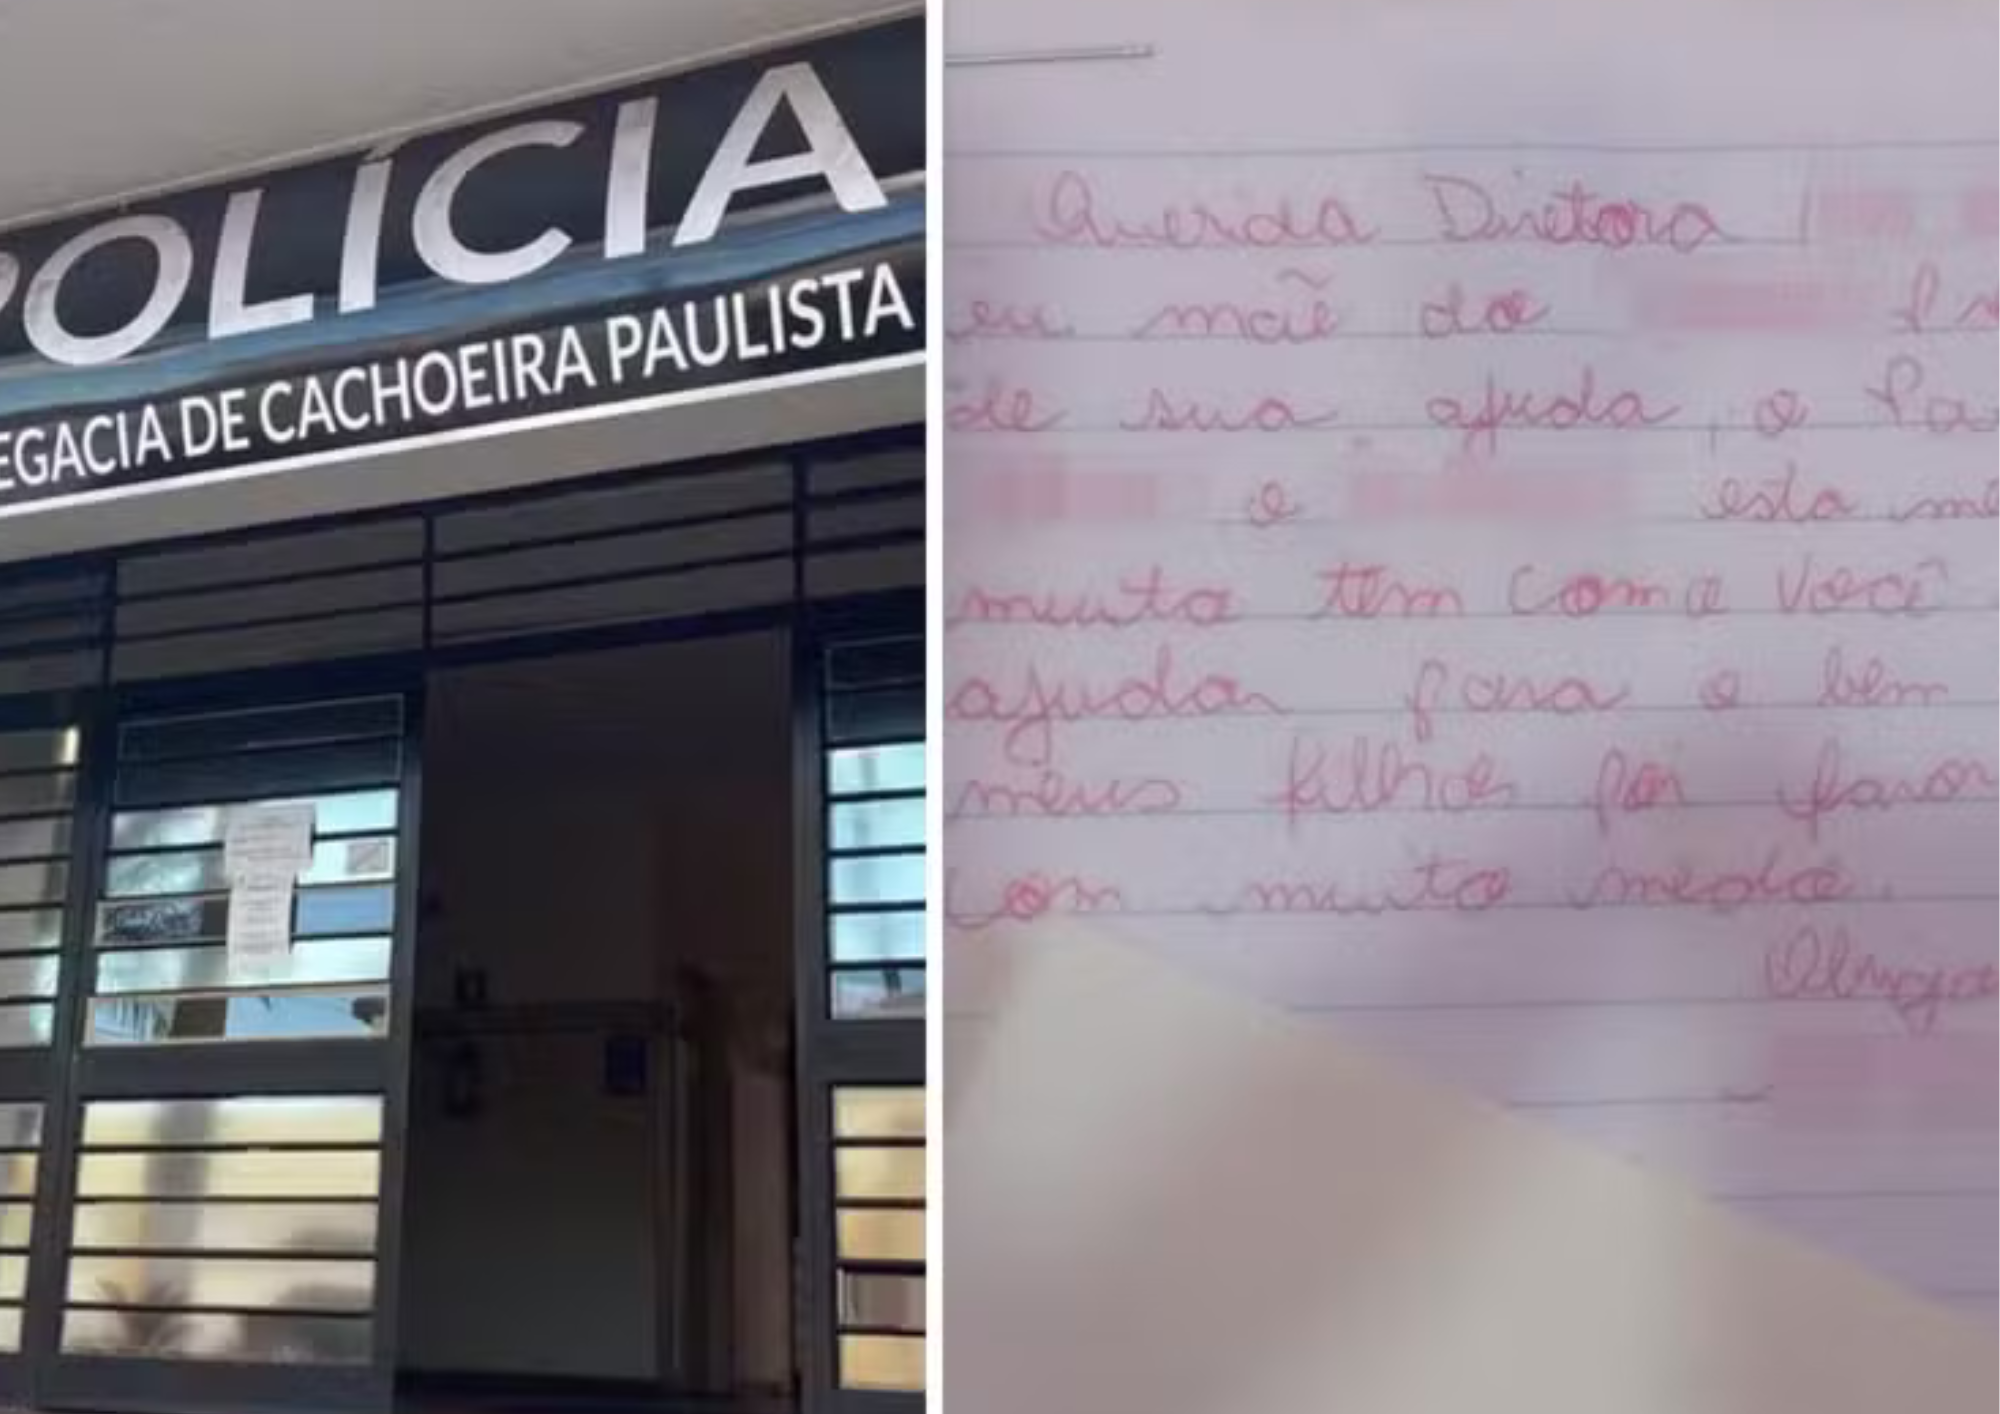 POLÍCIA
EGACIA DE CACHOEIRA PAULISTA
Querida Diretora
eu mãe do
de sua ajuda, o Pa
e esta me
muito tem como você
ajudar para o bem
meus filhos por favor
com muito medo.